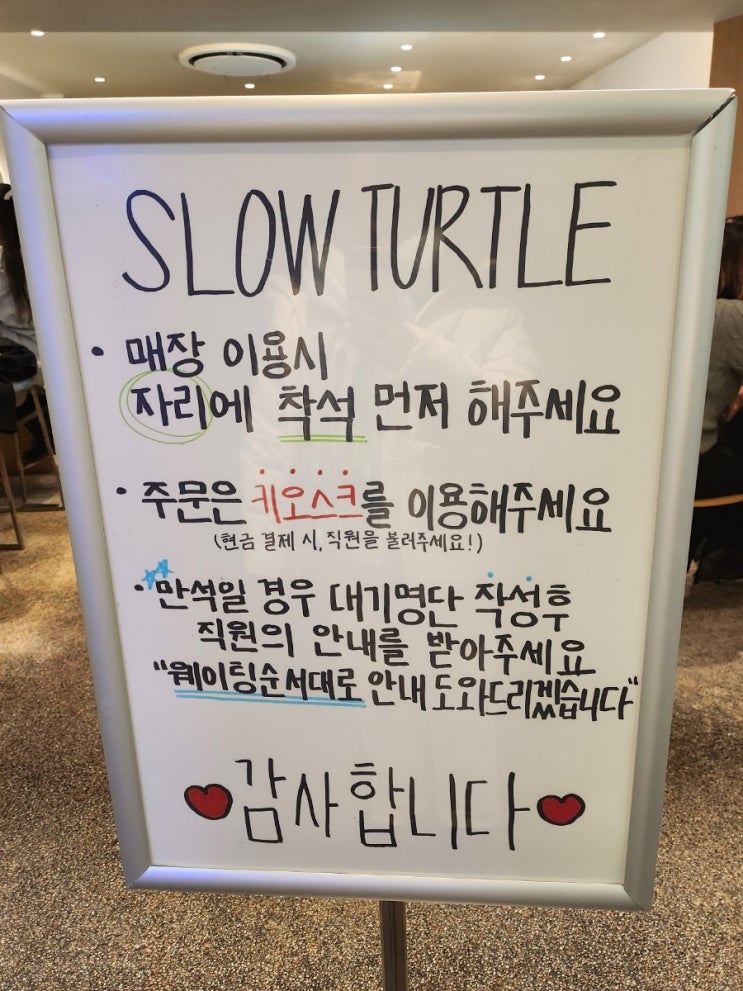 SLOW TURTLE
• 매장 이용시
자리에 착석 먼저 해주세요
• 주문은 키오스크를 이용해주세요
(현금 결제 시, 직원을 불러주세요!)
• 만석일 경우 대기명단 작성후
직원의 안내를 받아주세요
"웨이팅순서대로 안내도와드리겠습니다"
감사합니다